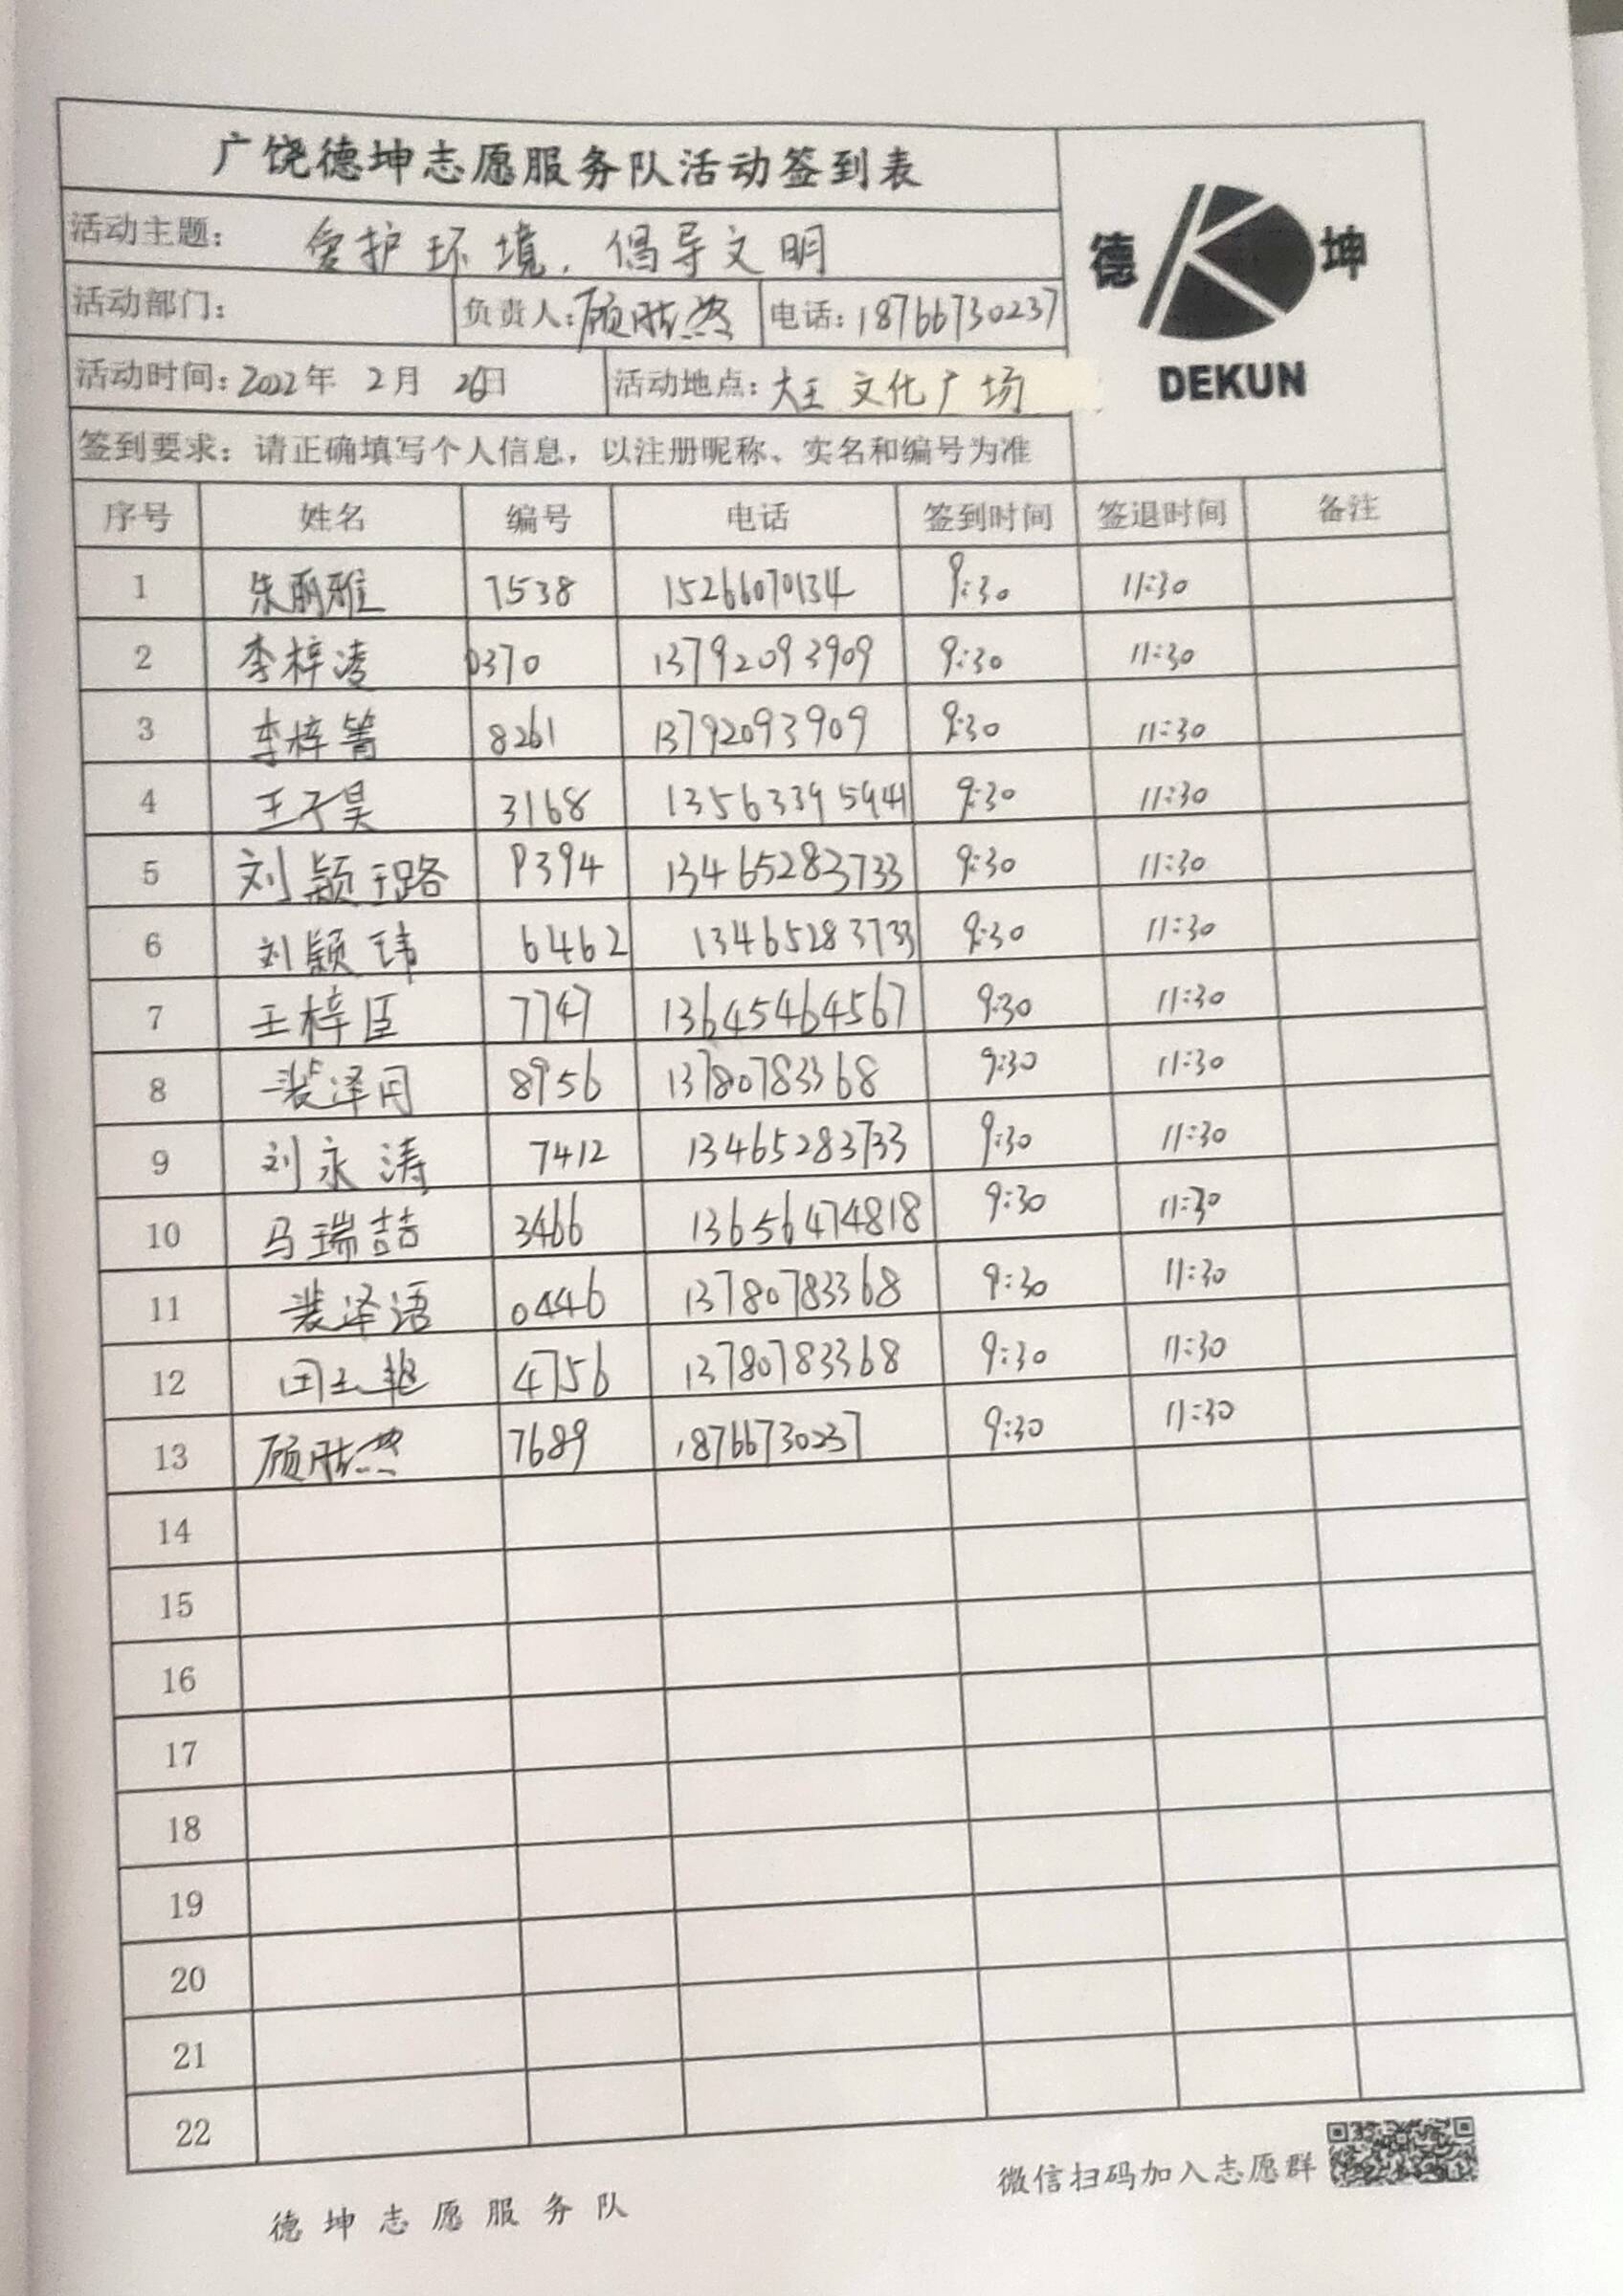 广饶德坤志愿服务队活动签到表
活动主题：爱护环境，倡导文明
德 坤
DEKUN
活动部门： 负责人：顾胜然 电话：18766730237
活动时间：2022年 2月 26日 活动地点：大王文化广场
签到要求：请正确填写个人信息，以注册昵称、实名和编号为准
序号 姓名 编号 电话 签到时间 签退时间 备注
1 朱丽雅 7538 15266070134 9:30 11:30
2 李梓凌 0370 13792093909 9:30 11:30
3 李梓箐 8261 13792093909 9:30 11:30
4 王子昊 3168 13563395941 9:30 11:30
5 刘颖璐 9394 13465283733 9:30 11:30
6 刘颖玮 6462 13465283733 9:30 11:30
7 王梓臣 7747 13645464567 9:30 11:30
8 裴泽同 8956 13780783368 9:30 11:30
9 刘永涛 7412 13465283733 9:30 11:30
10 马瑞喆 3466 13656474818 9:30 11:30
11 裴泽语 0446 13780783368 9:30 11:30
12 田玉艳 4756 13780783368 9:30 11:30
13 顾胜然 7689 18766730237 9:30 11:30
14
15
16
17
18
19
20
21
22
微信扫码加入志愿群
德坤志愿服务队